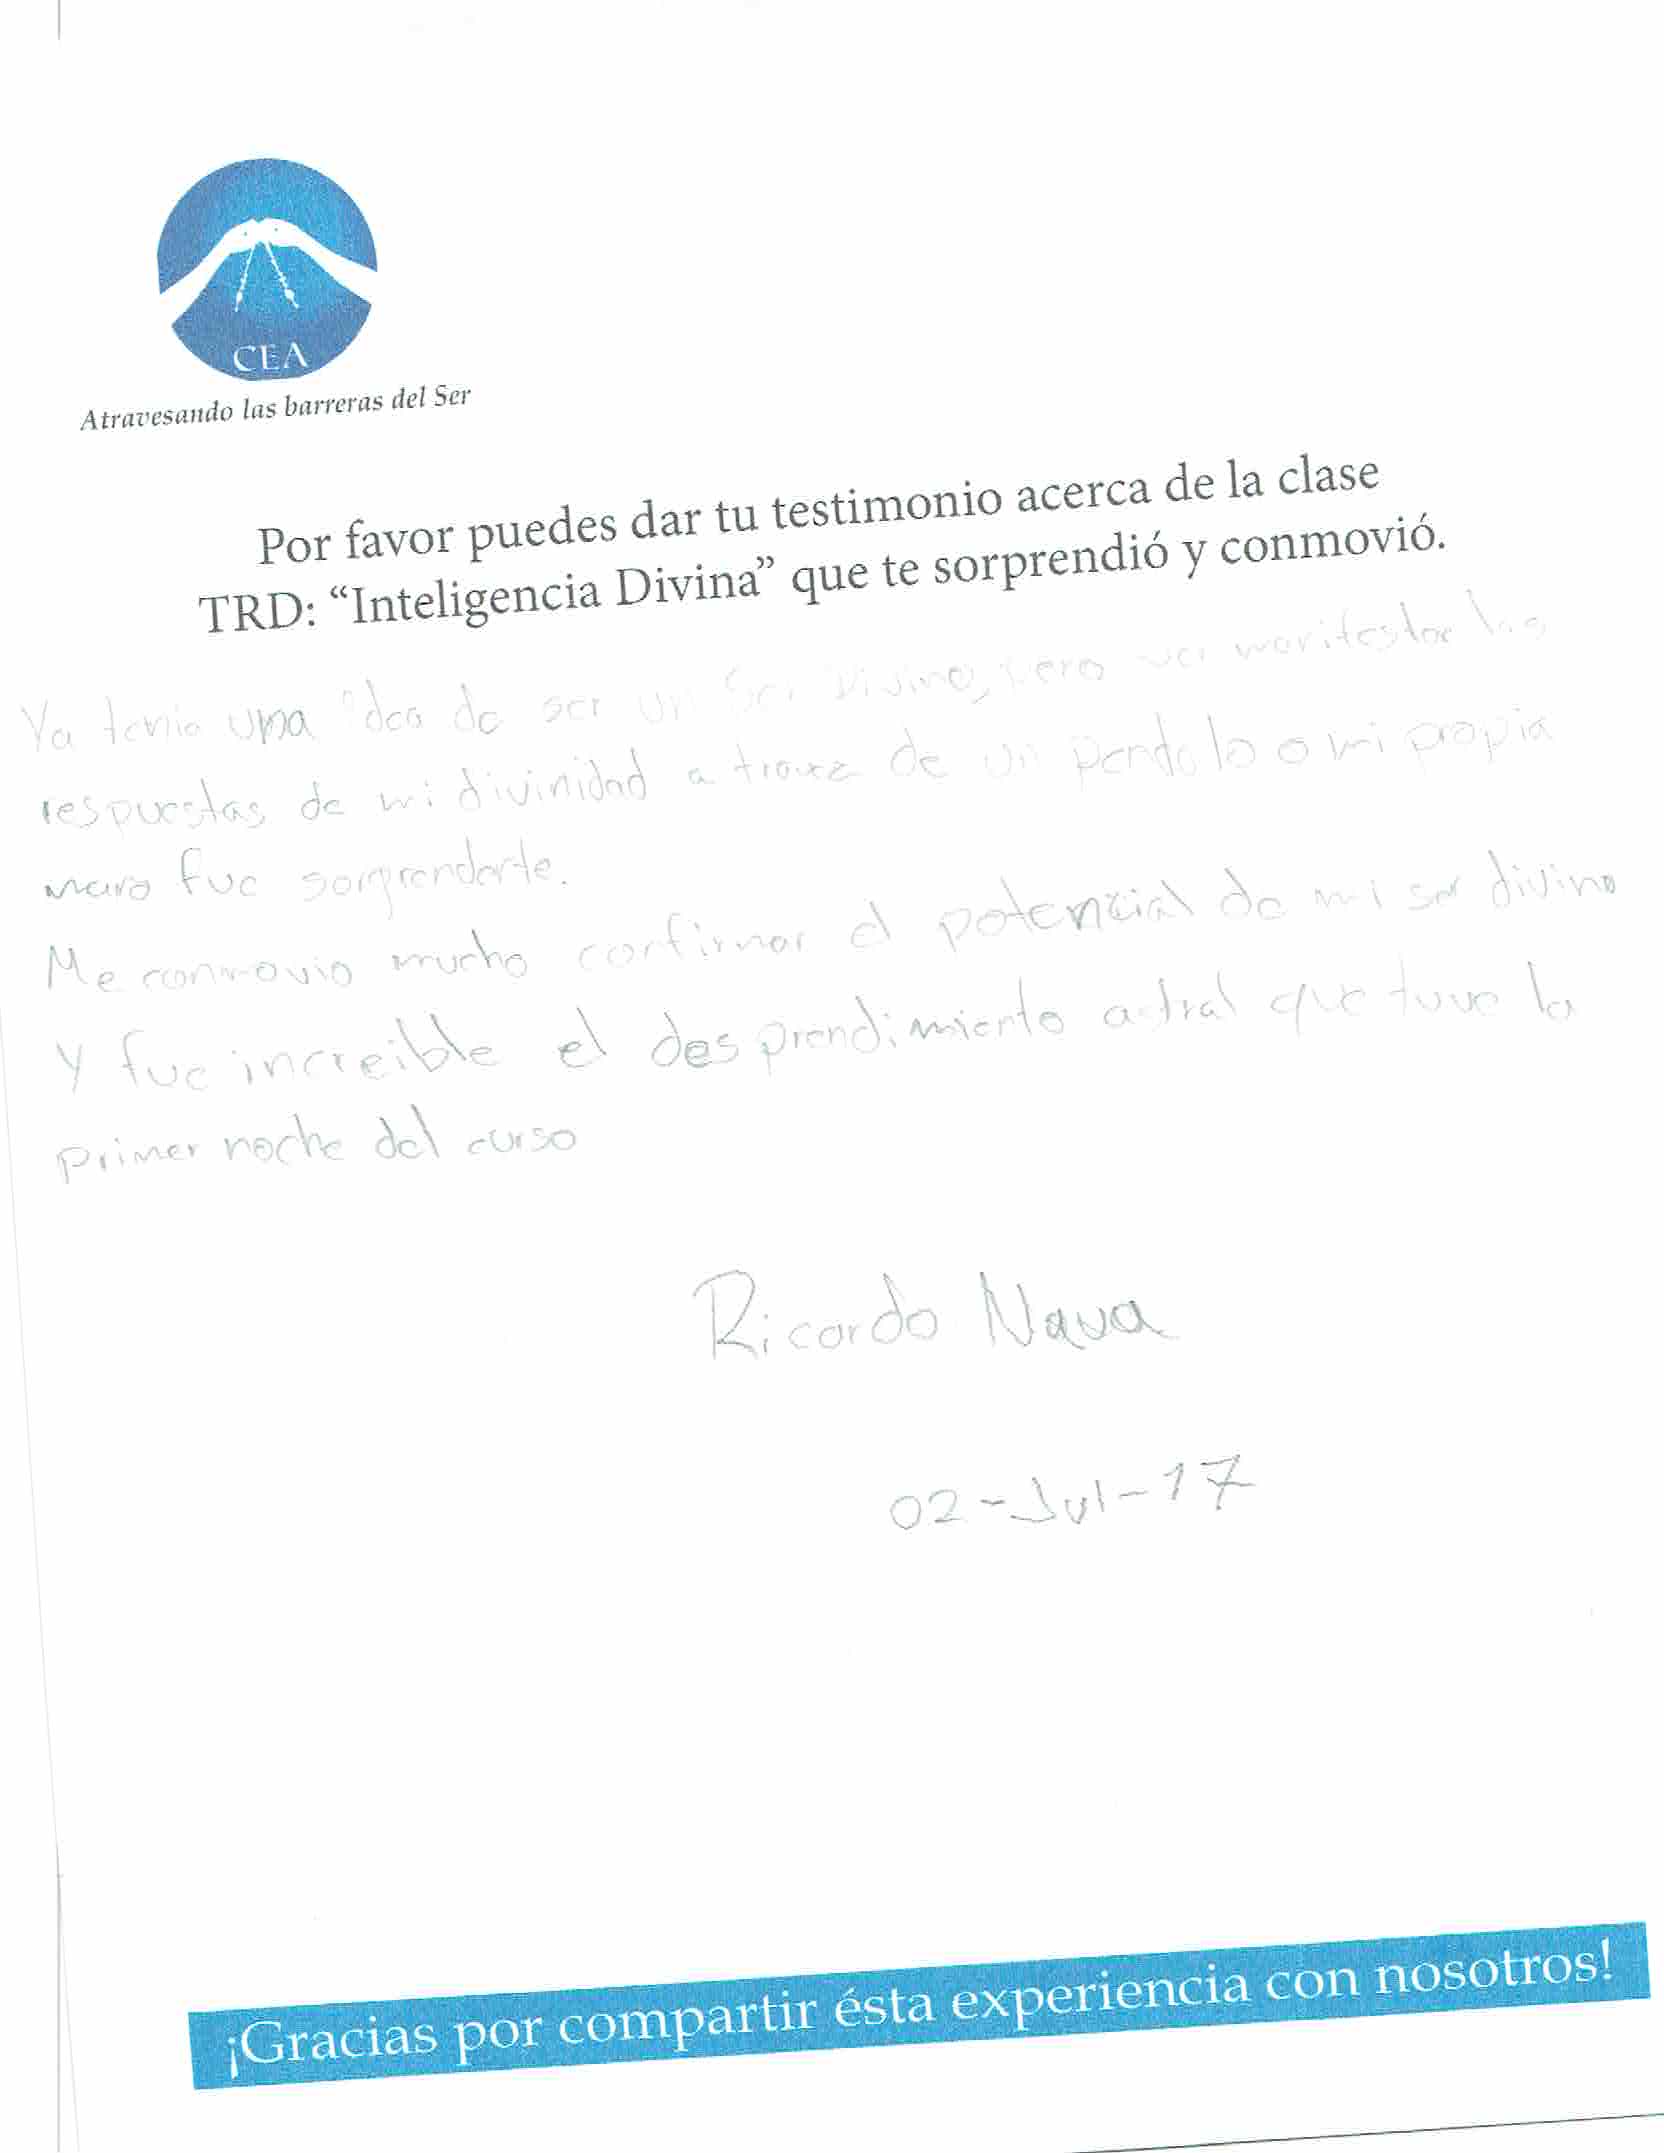 CEA
Atravesando las barreras del Ser
Por favor puedes dar tu testimonio acerca de la clase
TRD: “Inteligencia Divina” que te sorprendió y conmovió.
Ya tenia una idea de ser un Ser Divino, pero ver manifestar las
respuestas de mi divinidad a travez de un pendolo o mi propia
mano fue sorprendente.
Me conmovio mucho confirmar el potencial de mi ser divino
y fue increible el desprendimiento astral que tuve la
primer noche del curso
Ricardo Nava
02-Jul-17
¡Gracias por compartir ésta experiencia con nosotros!